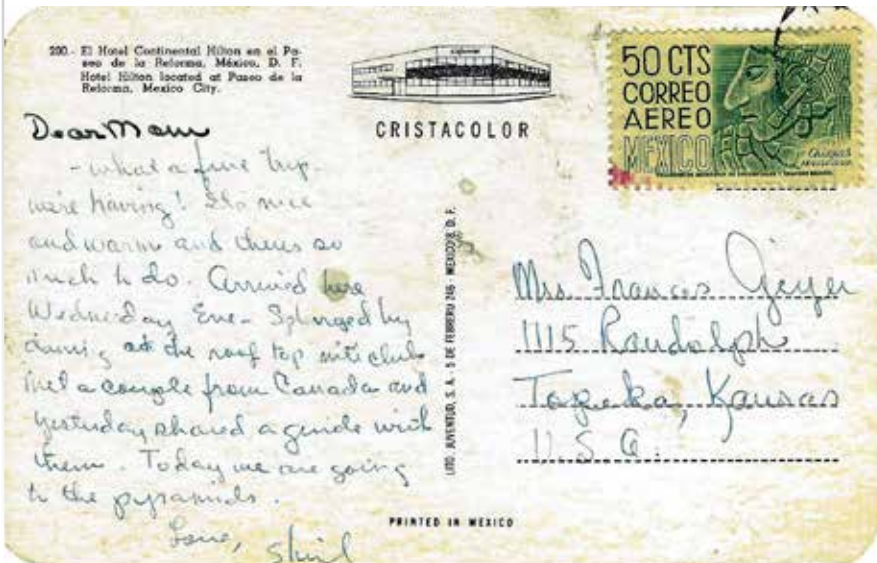 200.- El Hotel Continental Hilton en el Pa-
seo de la Reforma, México, D. F.
Hotel Hilton located at Paseo de la
Reforma, Mexico City.
CRISTACOLOR
50 CTS
CORREO
AEREO
MEXICO
Dear Mom
- what a fine trip
we're having! Its nice
and warm and theres so
much to do. Arrived here
Wednesday Eve - Splurged by
dining at the roof top nite club
met a couple from Canada and
yesterday shared a guide with
them. Today we are going
to the pyramids.
Love,
Shirl
LITO JUVENTUD, S. A. - 5 DE FEBRERO 246 - MEXICO 8, D. F.
Mrs. Frances Geyer
1115 Randolph
Topeka, Kansas
U.S.A.
PRINTED IN MEXICO